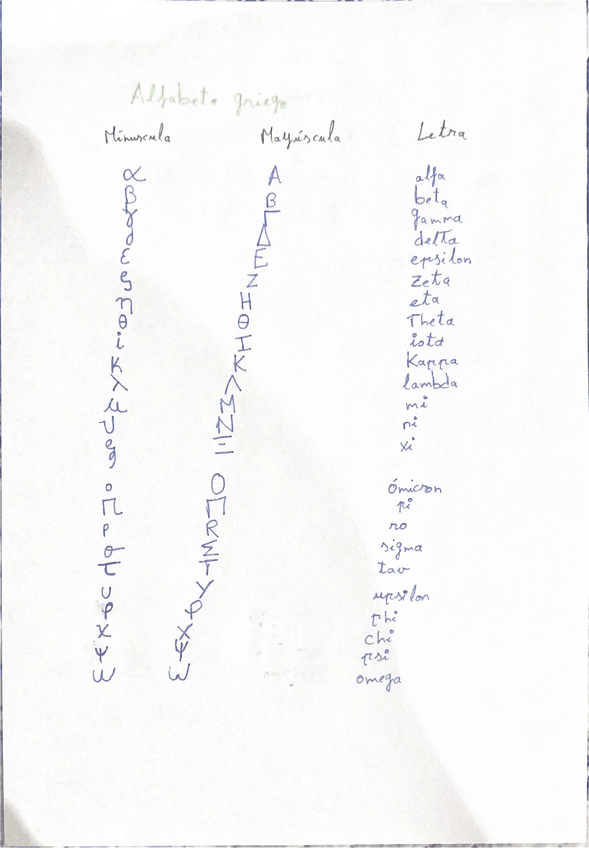 Alfabeto griego
Minuscula Mayúscula Letra
α Α alfa
β Β beta
γ Γ gamma
δ Δ delta
ε Ε epsilon
ζ Ζ Zeta
η Η eta
θ Θ Theta
i Ι iota
κ Κ Kappa
λ Λ lambda
μ Μ mi
υ Ν ni
ξ Ξ xi
ο Ο ómicron
π Π pi
ρ R ro
σ Σ sigma
τ Τ tav
υ Υ upsilon
φ φ phi
χ Χ chi
ψ Ψ psi
ω ω omega